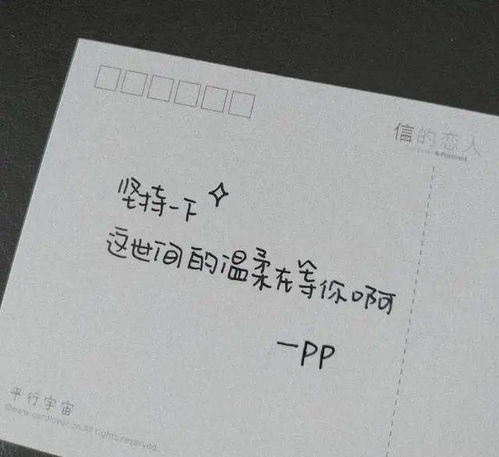 信的恋人
坚持一下
这世间的温柔在等你啊
—PP
平行宇宙
©www.cardlover.cn.All rights reserved.